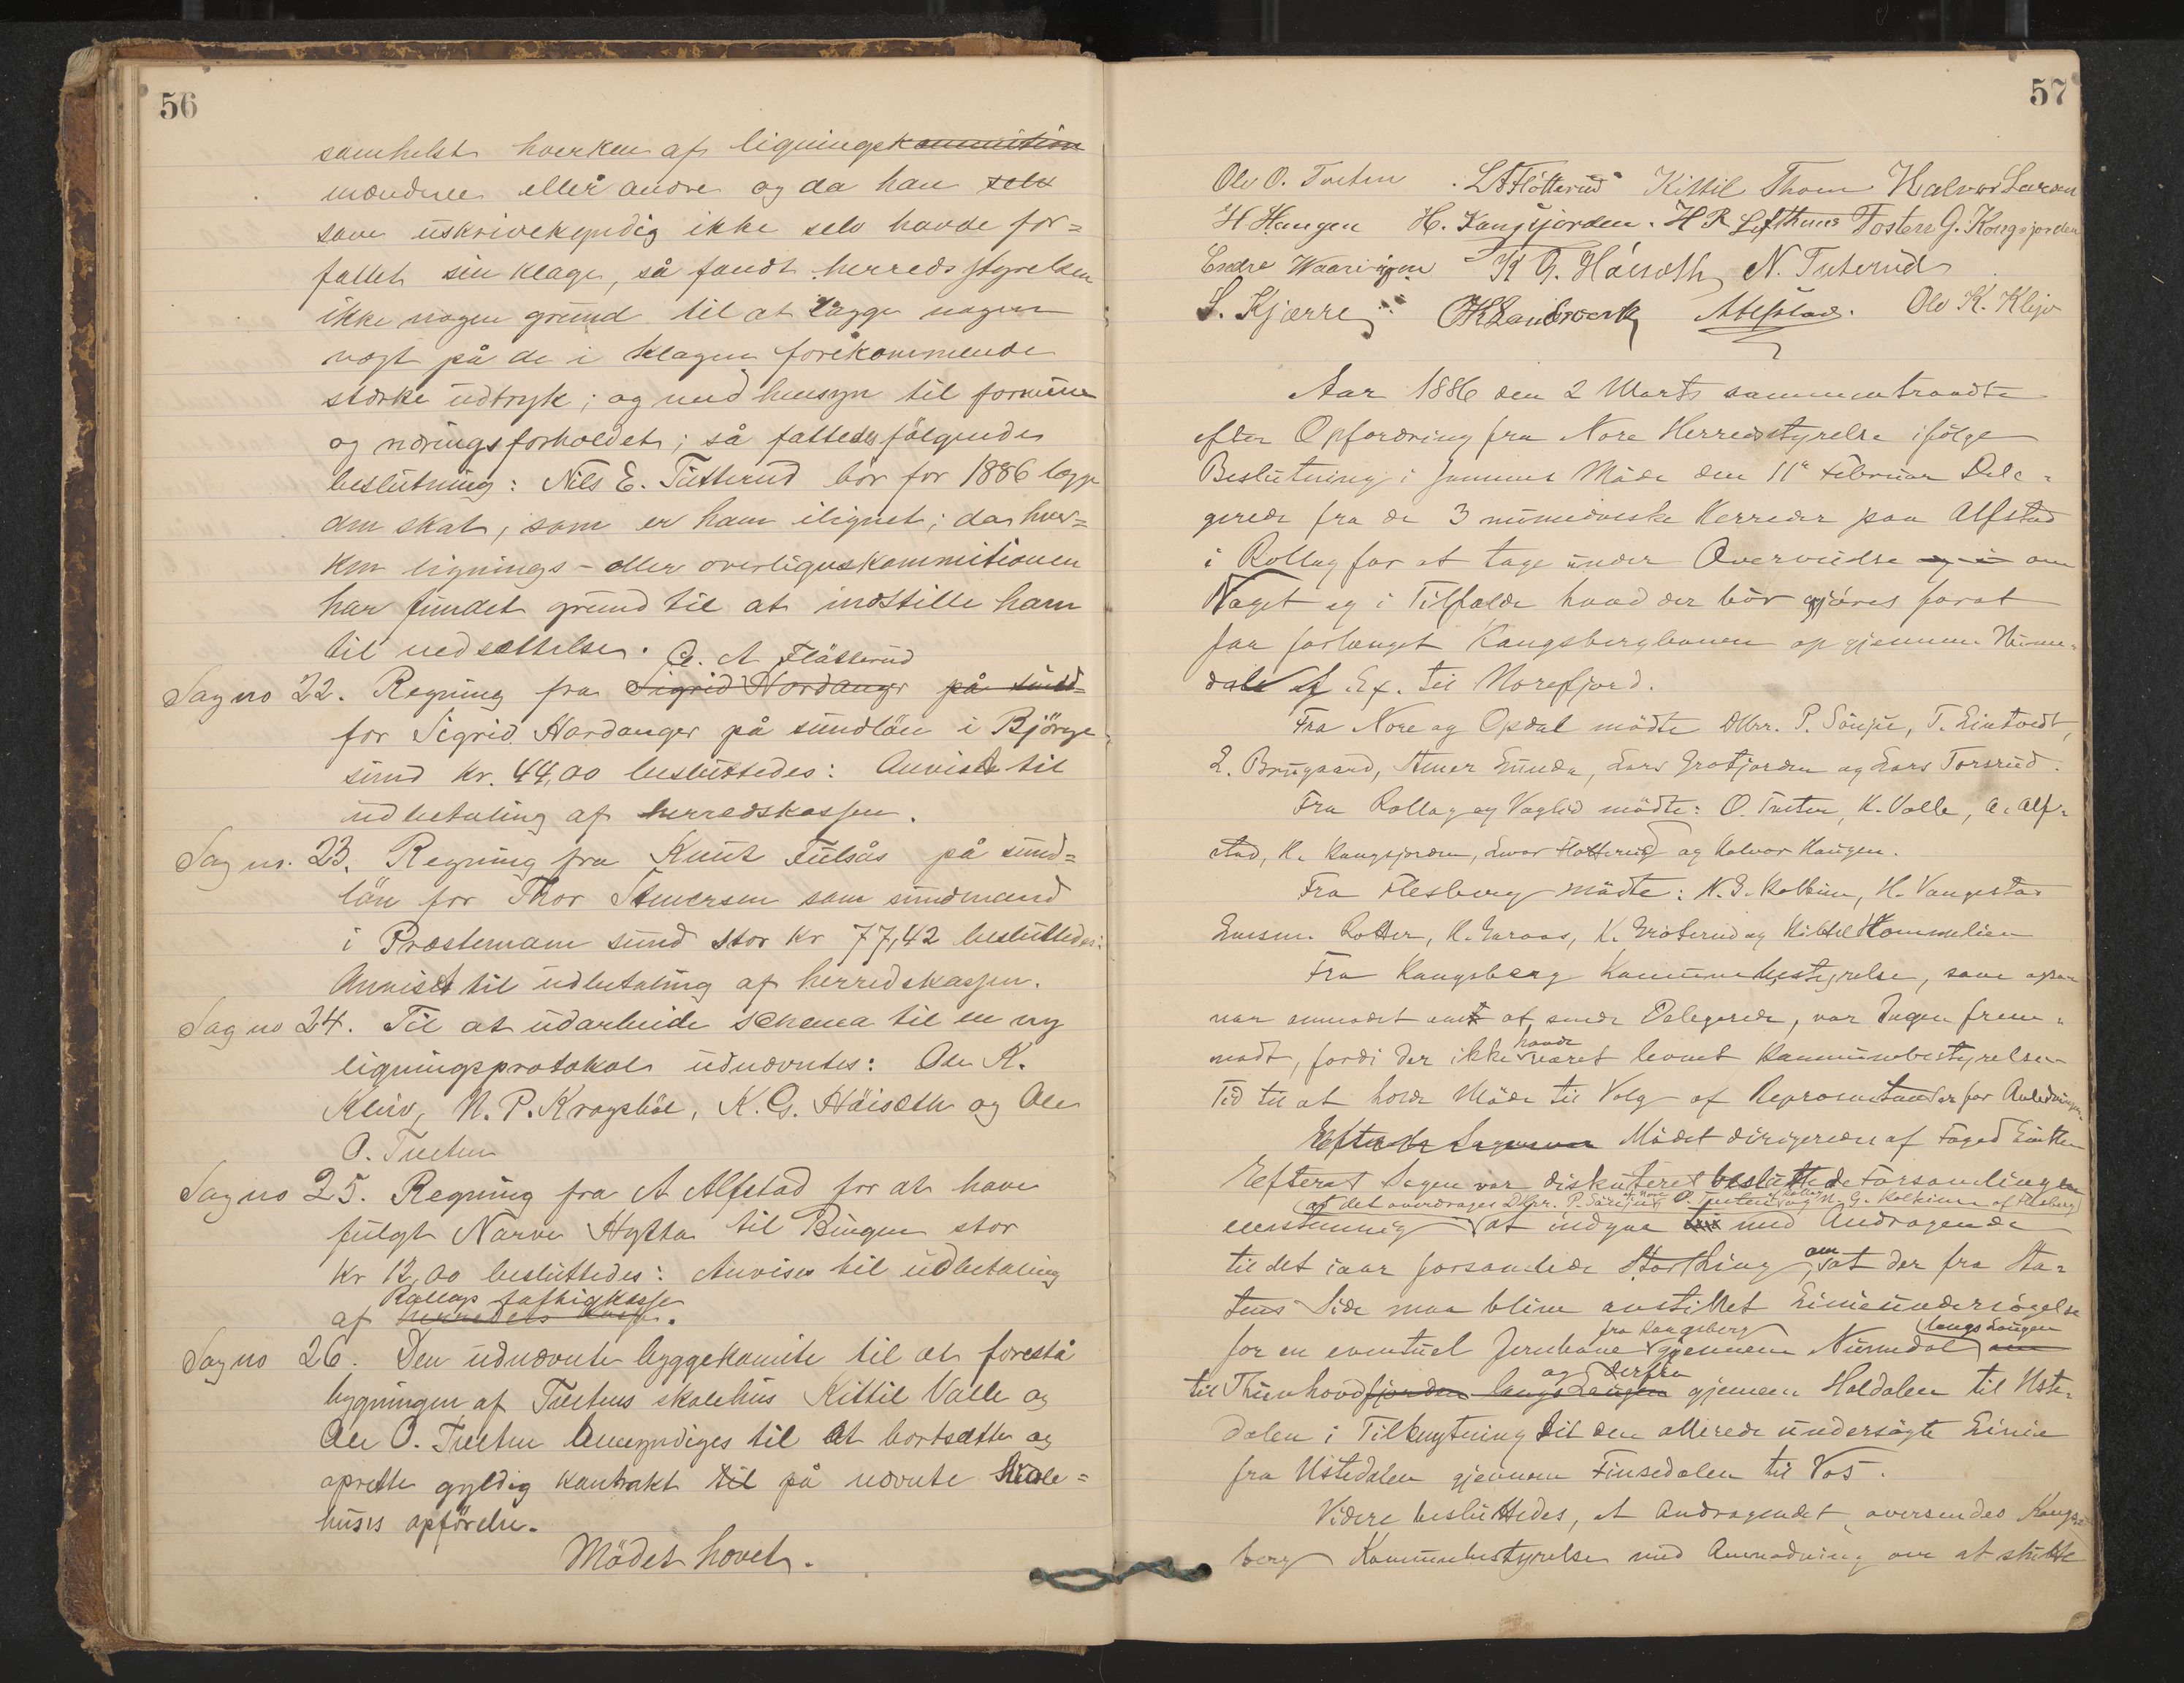 56
somhelst hverken af ligningskommission
mændene eller andre og da han selv
som uskrivekyndig ikke selv havde for=
fattet sin klage, så fandt herredsstyrelsen
ikke nogen grund til at lægge nogen
vægt på de i klagen forekommende
stærke udtryk; og med hensyn til formue
og næringsforholdet; så fattedes følgende
beslutning: Nils E. Tutterud bör for 1886 lægge
den skat, som er ham ilignet; da hver=
ken lignings- eller overlignskommitionen
har fundet grund til at indstille ham
til nedsættelse.
G. A Flåtterud
Sag no 22. Regning fra Sigrid Nordanger på sund=
for Sigrid Hardanger på sundlön i Björge
sund kr. 44,00 besluttedes: Anvises til
udbetaling af herredskassen.
Sag no. 23. Regning fra Knut Fulsås på sund=
lön for Thor Stenersen som sundmand
i Præstemoen sund stor kr 77,42 besluttedes:
Anvises til udbetaling af herredskassen.
Sag no 24. Til at udarbeide schema til en ny
ligningsprotokol udnævntes: Ole K.
Kleiv, N. P. Kragsböl, K. G. Höiseth og Ole
O. Traeten
Sag no 25. Regning fra A Alfstad for at have
fulgt Narve Hytta til Bingen stor
kr 12,00 besluttedes: Anvises til udbetaling
Rollags fattigkasse
af herredets kasse.
Sag no 26. Den udnævnte byggekomite til at forestå
bygningen af Traetens skolehus Kittil Valle og
Ole O. Traeten bemyndiges til at bortsætte og
oprette gyldig kontrakt til på nævnte skole=
huses opförelse.
Mödet hævet.
57
Ole O. Traeten L A Flötterud Kittil Thom Halvor Larsen
H Haugen H. Kongsjorden. H R Lofthuus Tosten G. Kongsjorden
Endre Waaringen K G. Höiseth N. Tuterud
S. Kjærre O K Landsverk A Alfstad. Ole K. Klejv
Aar 1886 den 2 Marts sammentraadte
efter Opfordring fra Nore Herredsstyrelse ifölge
Beslutning i sammes Möde den 11te Februar Dele=
gerede fra de 3 numedalske Herreder paa Alfstad
i Rollag for at tage under Overveielse og i om
Noget og i Tilfælde hvad der bör gjöres forat
faa forlænget Kongsbergbanen op gjennem Nume=
dal f. Ex. til Norefjord.
Fra Nore og Opdal mödte DHrr. P. Sönju, T. Eintvedt,
E. Brugaard, Stener Lunde, Lars Grotjorden og Lars Torsrud.
Fra Rollag og Veglid mödte: O. Traeten, K. Valle, A. Alf=
stad, H. Kongsjorden, Iver Flötterud og Halvor Haugen.
Fra Flesberg mödte: N. G. Kolkinn, H. Vangestad
Gunsm. Rotter, H. Garaas, K. Groterud og Kittel Hommelien
Fra Kongsberg Kommunebestyrelse, som ogsaa
var anmodet om at sende Delegerede, var Ingen frem=
mödt, fordi der ikke havde været levnet Kommunebestyrelsen
Tid til at holde Möde til Valg af Repræsentanter for Anledningen.
Efterat Sagen var Mödet dirigeredes af Foged
Efterat Sagen var diskuteret besluttede Forsamlingen
at det overdrages DHrr. P. Sönju af Nore O. Traeten af Rollag og N. G. Kolkinn af Flesberg
eenstemmig at indgaa til med Andragende
til det iaar forsamlede Storthing om, at der fra Sta=
tens Side maa blive anstillet Linieundersögelse
for en eventuel Jernbane fra Kongsberg gjennem Numedal langs Laugen om
til Thunhovdfjorden langs Laugen og derfra gjennem Haldalen til Uste=
dalen i Tilknytning til den allerede undersögte Linie
fra Ustedalen gjennem Finsedalen til Vos.
Videre besluttedes, at Andragendet oversendes Kongs=
berg Kommunebestyrelse med Anmodning om at stötte